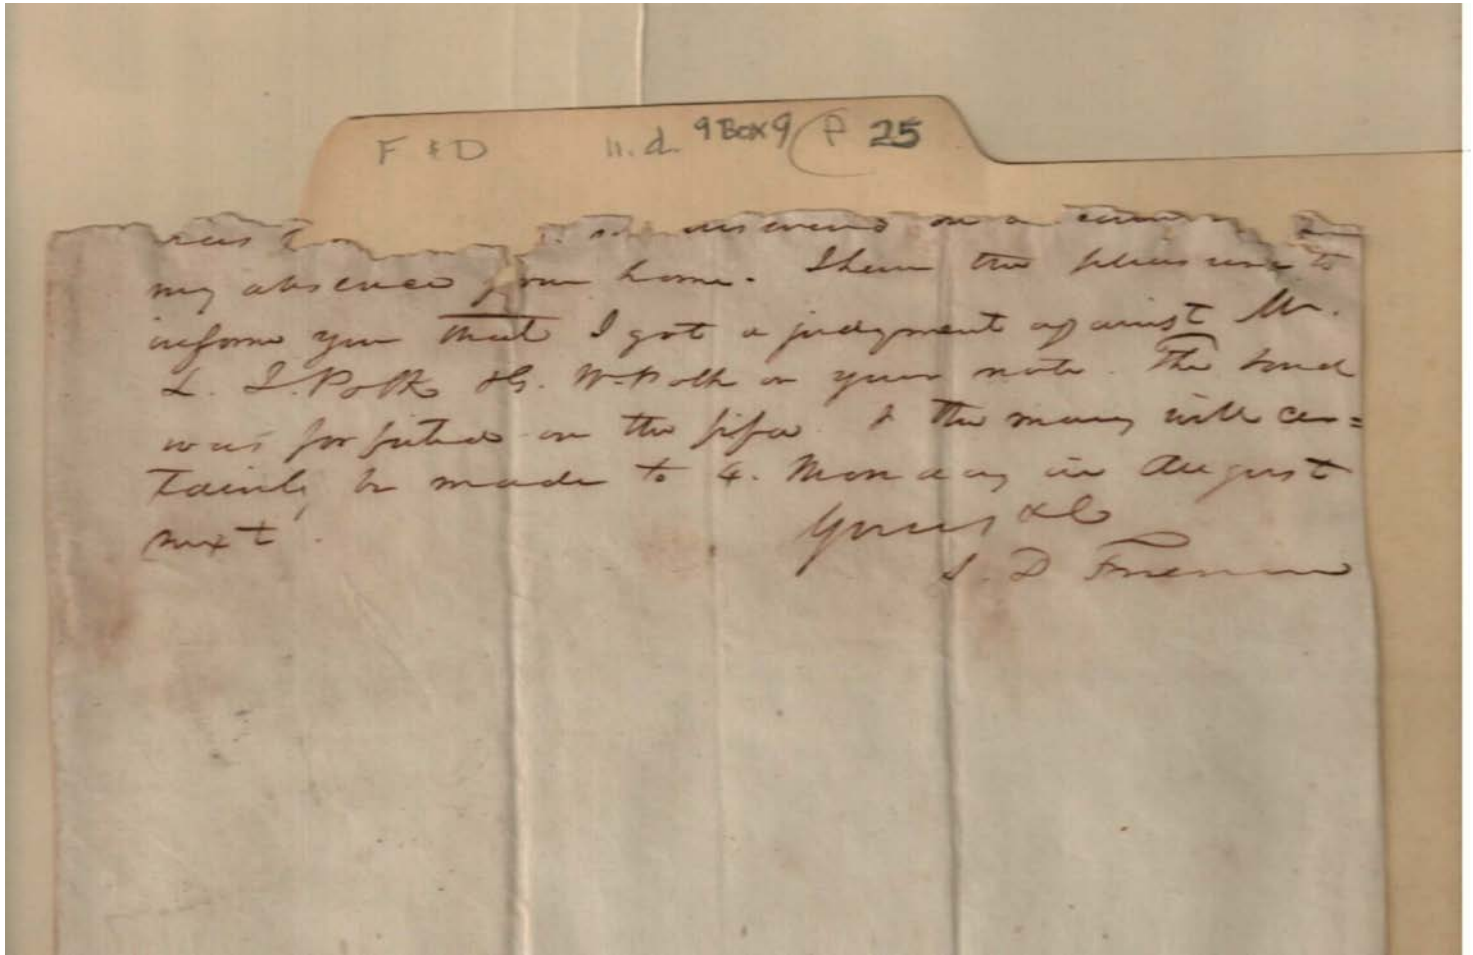 F & D n.d. 9 Box 9 P 25
answered on a
my absence from home. I have the pleasure to
inform you that I got a judgment against Mr.
L. J. Polk & G. W. Polk on your note. The bond
was forfited on the fifa & the money will cer=
tainly be made to 4. Monday in August
next.
Yours &C
J. D Freeman